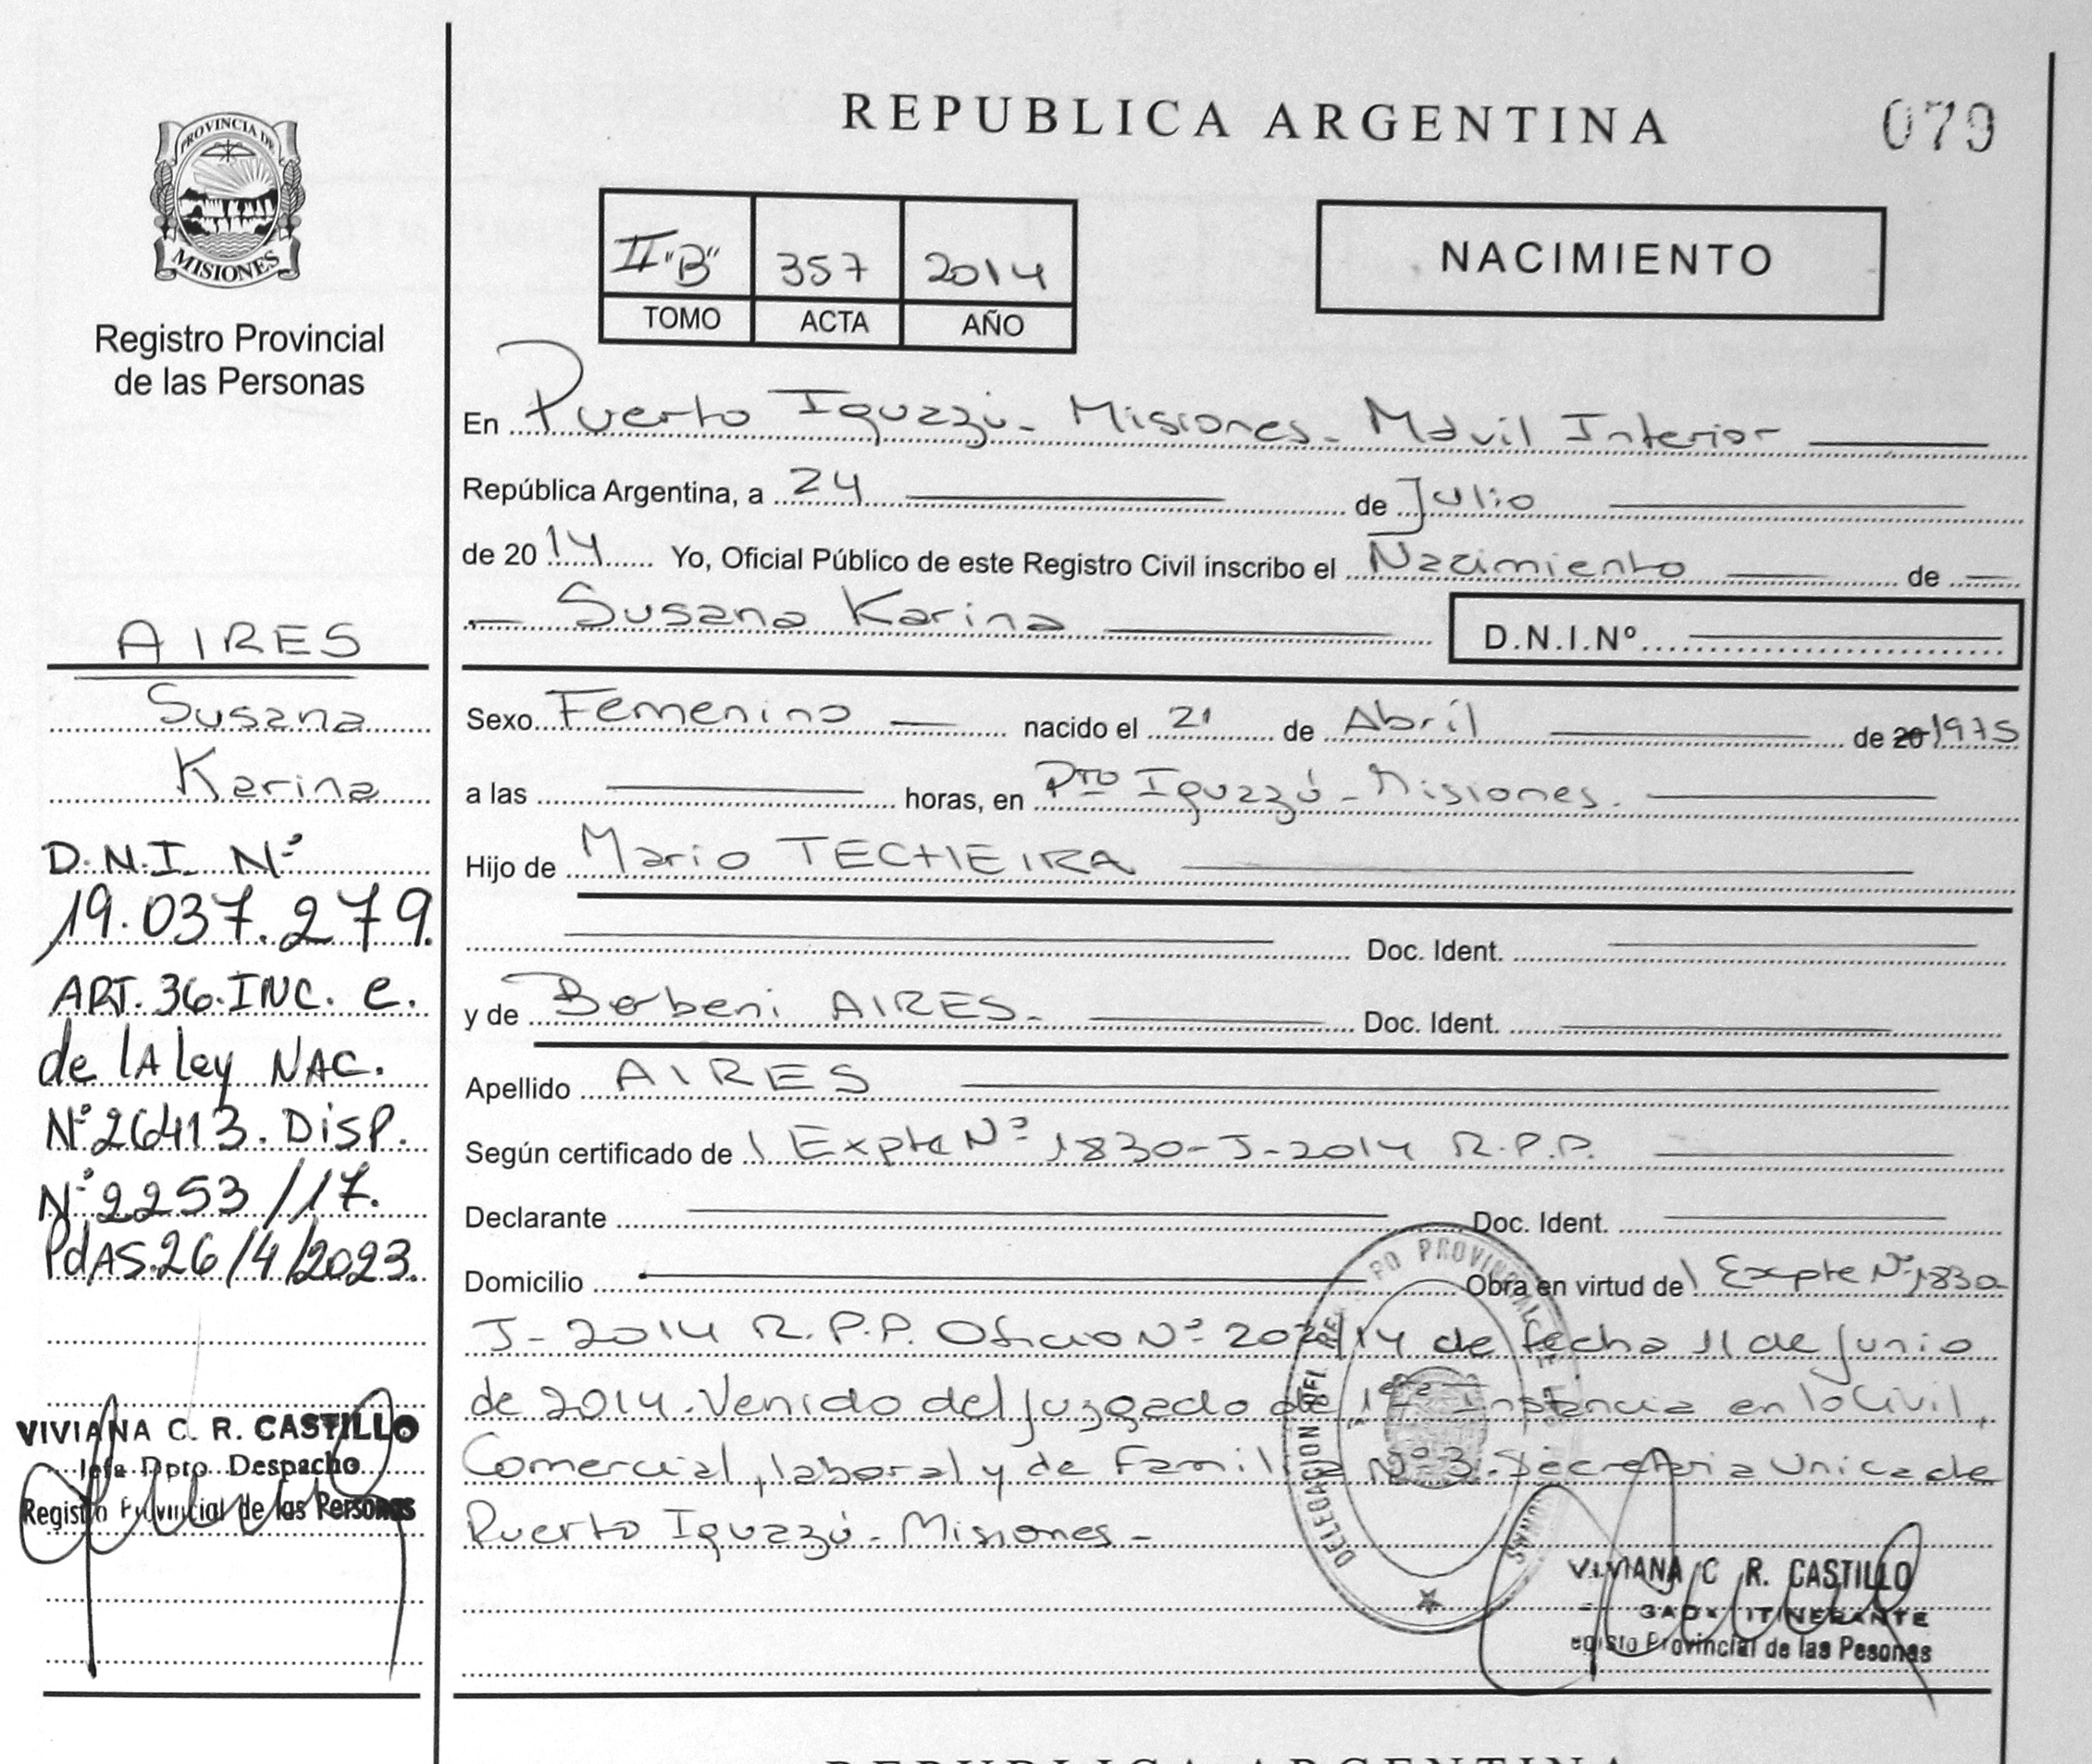 REPUBLICA ARGENTINA
079
PROVINCIA DE
MISIONES
Registro Provincial
de las Personas
II "B" 357 2014
TOMO ACTA AÑO
NACIMIENTO
En Puerto Iguazú - Misiones - Móvil Interior
República Argentina, a 24 de Julio
de 2014 Yo, Oficial Público de este Registro Civil inscribo el Nacimiento de
Susana Karina
D.N.I.Nº
Sexo Femenino nacido el 21 de Abril de 20 1975
a las horas, en Pto Iguazú - Misiones.
Hijo de Mario TECHEIRA
Doc. Ident.
y de Berbeni AIRES - Doc. Ident.
Apellido AIRES
Según certificado de Expte Nº 1830-J-2014 R.P.P.
Declarante Doc. Ident.
Domicilio Obra en virtud de Expte Nº 1830
J-2014 R.P.P. Oficio Nº /14 de fecha 11 de Junio
de 2014. Venido del Juzgado de 1era Instancia en lo Civil,
Comercial, laboral y de Familia Nº 3. Secretaria Unica de
Puerto Iguazú - Misiones -
DELEGACION DEL PROVINCIAL DE
VIVIANA C R. CASTILLO
ITINERANTE
Provincial de las Pesonas
AIRES
Susana
Karina
D.N.I. Nº
19.037.279.
ART. 36. INC. e.
de lA ley NAC.
Nº 26413. DISP.
Nº 2253/17.
PdAS. 26/4/2023.
VIVIANA C. R. CASTILLO
Jefa Dpto Despacho
Registro Provincial de las Personas
REPUBLICA ARGENTINA